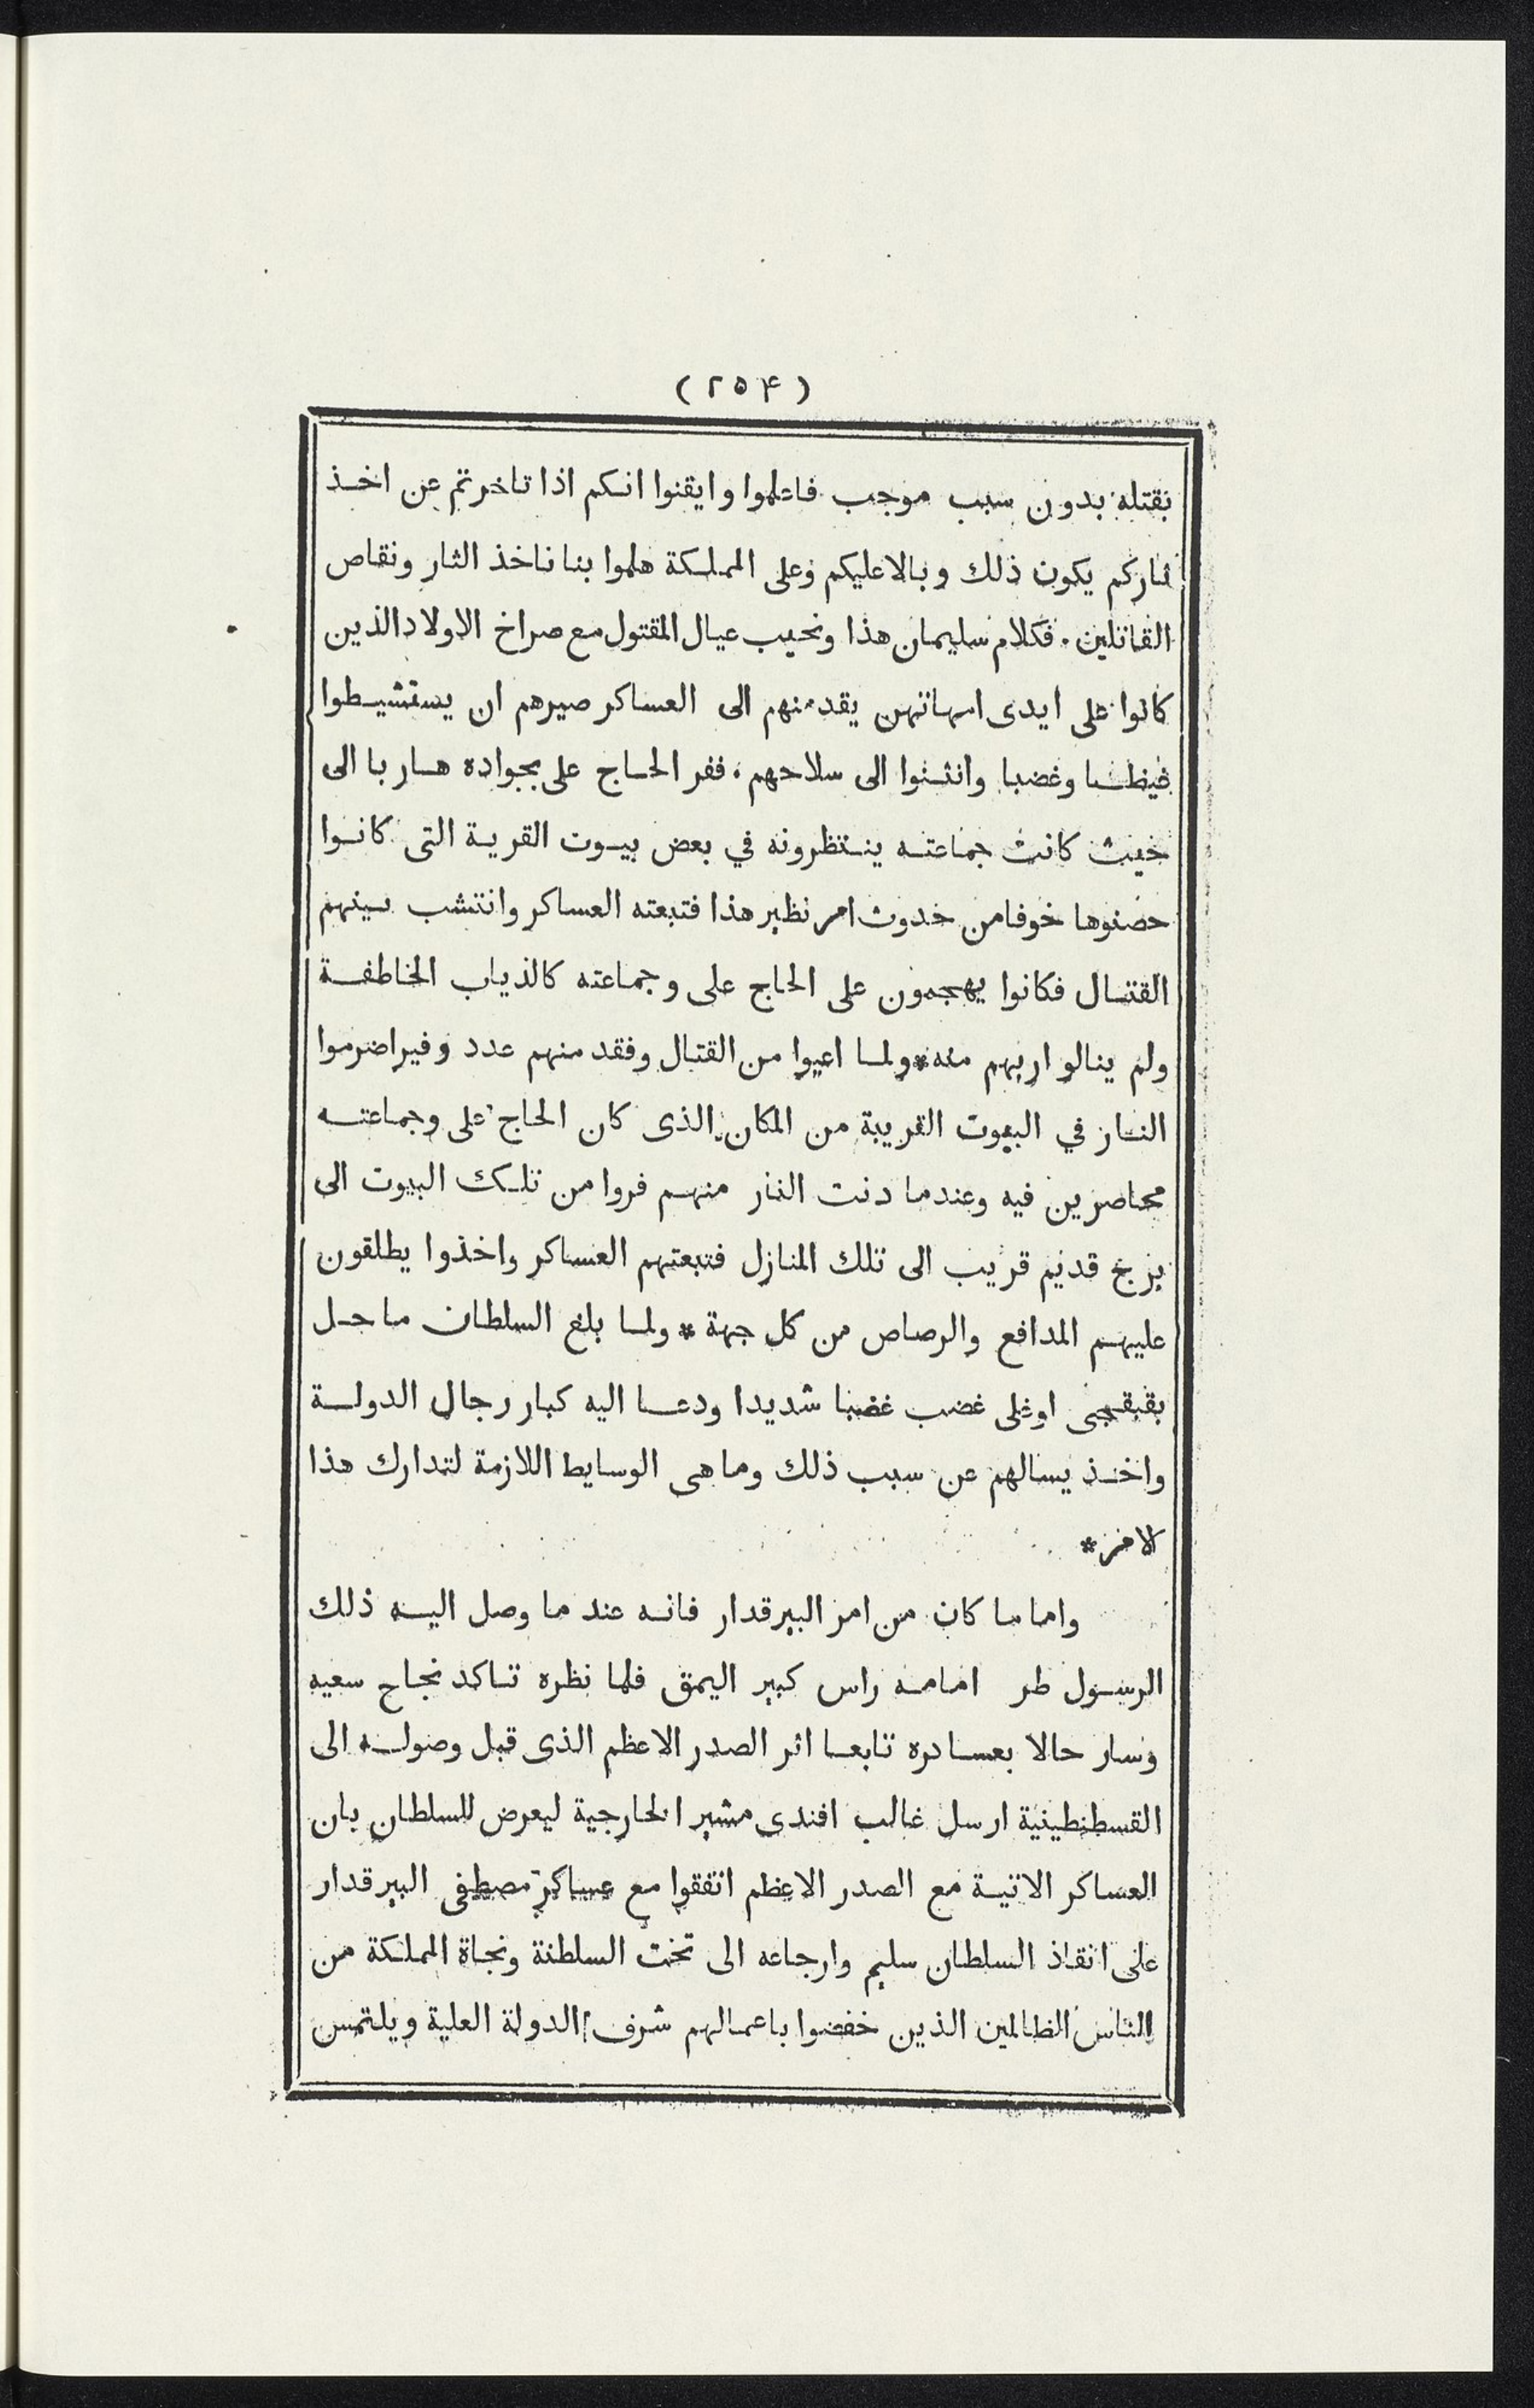 (٢٥۴)
نقتله بدون سبب موجب فاعلموا وايقنوا انكم اذا تاخرتم عن اخذ
ثاركم يكون ذلك وبالا عليكم وعلى المملكة هلموا بنا ناخذ الثار ونقاص
القاتلين . فكلام سليمان هذا ونحيب عيال المقتول مع صراخ الاولاد الذين
كانوا على ايدى امهاتهن يقدمنهم الى العساكر صيرهم ان يستشيطوا
غيظا وغضبا وانثنوا الى سلاحهم . ففر الحاج على بجواده هاربا الى
حيث كانت جماعته ينتظرونه في بعض بيوت القرية التى كانوا
حصنوها خوفا من حدوث امر نظير هذا فتبعته العساكر وانتشب بينهم
القتال فكانوا يهجمون على الحاج على وجماعته كالذياب الخاطفة
ولم ينالو اربهم منه * ولما اعيوا من القتال وفقد منهم عدد وفير اضرموا
النار في البيوت القريبة من المكان الذى كان الحاج على وجماعته
محاصرين فيه وعندما دنت النار منهم فروا من تلك البيوت الى
برج قديم قريب الى تلك المنازل فتبعتهم العساكر واخذوا يطلقون
عليهم المدافع والرصاص من كل جهة * ولما بلغ السلطان ما حل
بقبقجى اوغلى غضب غضبا شديدا ودعا اليه كبار رجال الدولة
واخذ يسالهم عن سبب ذلك وما هى الوسايط اللازمة لتدارك هذا
الامر *
واما ما كان من امر البيرقدار فانه عند ما وصل اليه ذلك
الرسول طر امامه راس كبير اليمق فلما نظره تاكد نجاح سعيه
وسار حالا بعساكره تابعا اثر الصدر الاعظم الذى قبل وصوله الى
القسطنطينية ارسل غالب افندى مشير الخارجية ليعرض للسلطان بان
العساكر الاتية مع الصدر الاعظم اتفقوا مع عساكر مصطفى البيرقدار
على انقاذ السلطان سليم وارجاعه الى تخت السلطنة ونجاة المملكة من
الناس الظالمين الذين خفضوا باعمالهم شرف الدولة العلية ويلتمس